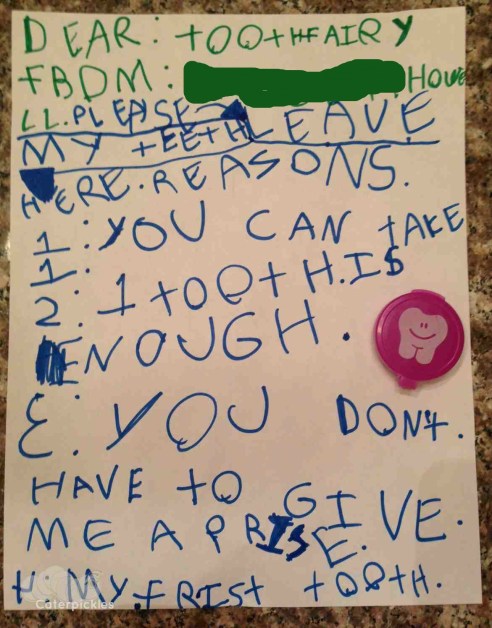 DEAR: tOOtHFAIRY
FROM: HOWE
LL.PLEASE LEAVE
MY tEEtH
HERE.REASONS.
1:YOU CAN tAKE
1.
2:1 tOOtH.IS
ENOUGH.
3.YOU DONt.
HAVE tO GIVE.
ME A PRISE.
4:MY FRISt tOOtH.
Caterpickles